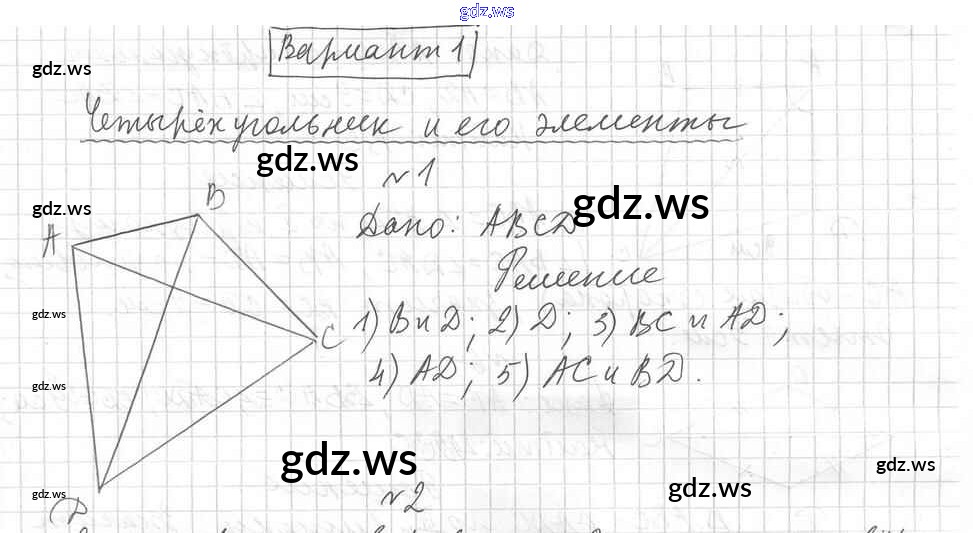 gdz.ws
Вариант 1
gdz.ws
Четырёхугольник и его элементы
gdz.ws
№1
gdz.ws
gdz.ws
B
A
Дано: ABCD
Решение
gdz.ws
1) B и D; 2) D; 3) BC и AD;
C
4) AD; 5) AC и BD.
gdz.ws
gdz.ws
gdz.ws
gdz.ws
gdz.ws
№2
D